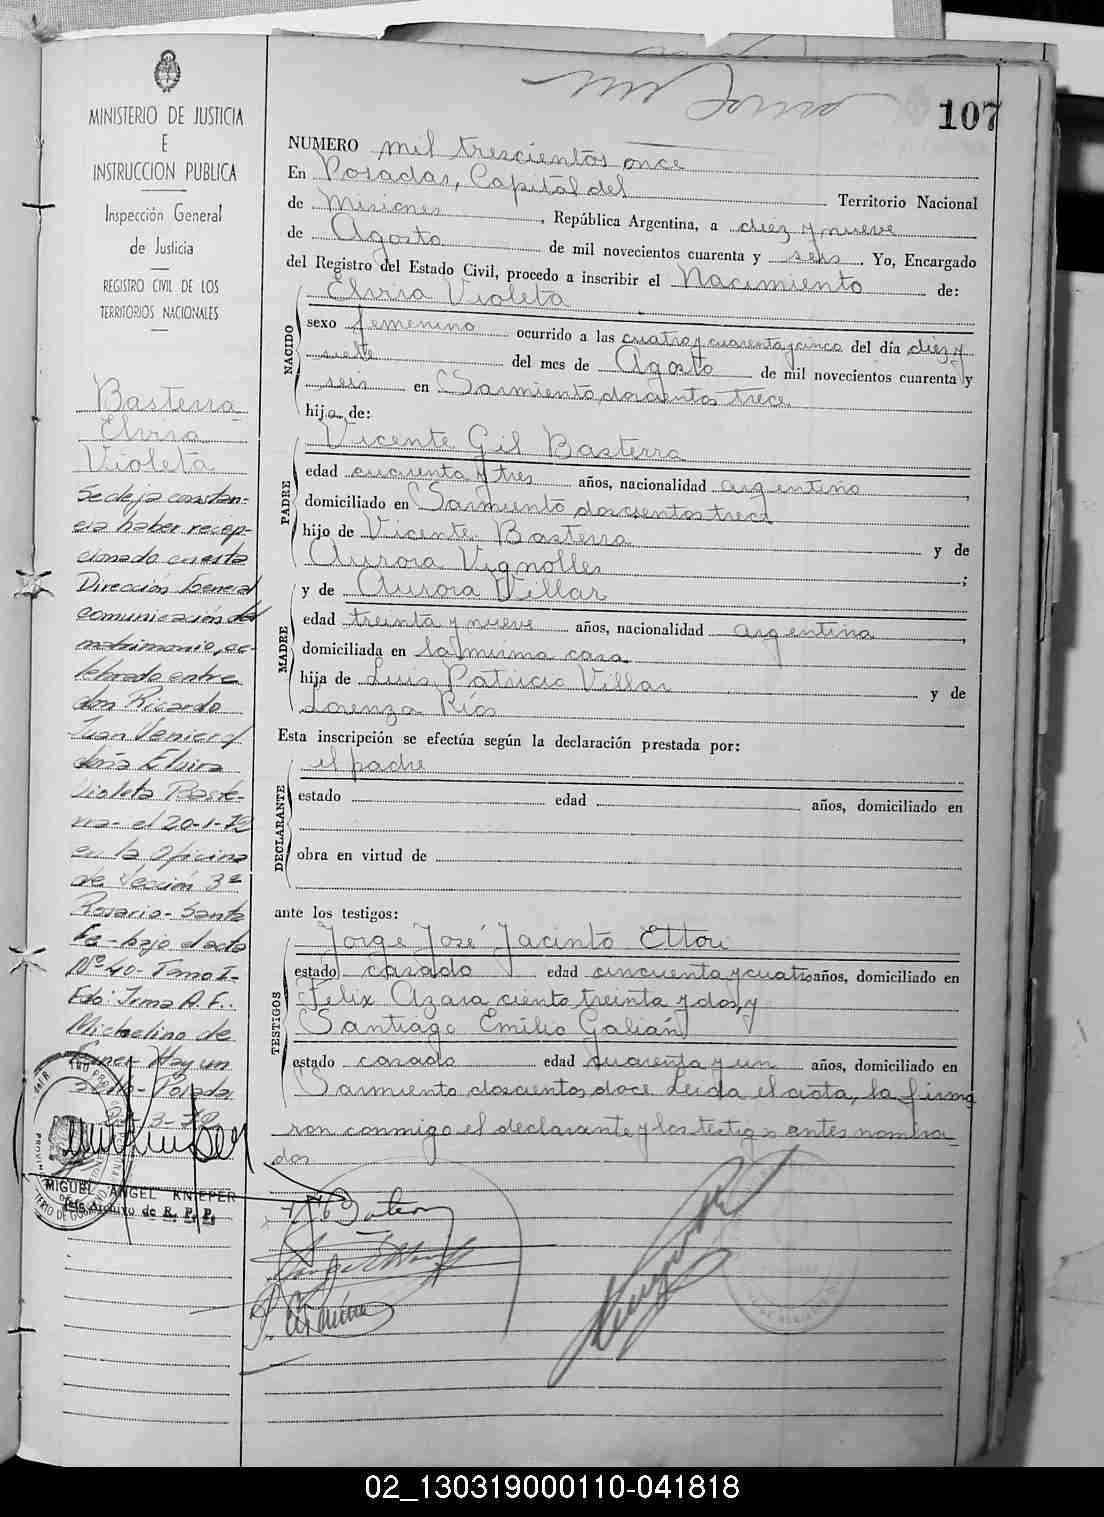 107
MINISTERIO DE JUSTICIA
E
INSTRUCCION PUBLICA
Inspección General
de Justicia
REGISTRO CIVIL DE LOS
TERRITORIOS NACIONALES
Basterra
Elvira
Violeta
Se deja constan-
cia haber recep-
cionado en esta
Dirección General
comunicación del
matrimonio, ce-
lebrado entre
don Ricardo
Juan Venier y
doña Elvira
Violeta Baste-
rra- el 20-1-72
en la Oficina
de Sección 3ª
Rosario- Santa
Fe- bajo el acta
Nº 40- Tomo I-
Fdo: Irma A. F.
Michelino de
Hay un
sello- Posadas
3-72
MIGUEL ANGEL KNIEPER
Jefe Archivo de R. P. P.
NUMERO mil trescientos once
En Posadas, Capital del Territorio Nacional
de Misiones, República Argentina, a diez y nueve
de Agosto de mil novecientos cuarenta y seis. Yo, Encargado
del Registro del Estado Civil, procedo a inscribir el Nacimiento de:
NACIDO
Elvira Violeta
sexo femenino ocurrido a las cuatro y cuarenta y cinco del día diez y
siete del mes de Agosto de mil novecientos cuarenta y
seis en Sarmiento doscientos trece
hija de:
PADRE
Vicente Gil Basterra
edad cuarenta y tres años, nacionalidad argentino,
domiciliado en Sarmiento doscientos trece
hijo de Vicente Basterra y de
Aurora Vignolles;
MADRE
y de Aurora Villar
edad treinta y nueve años, nacionalidad argentina,
domiciliada en la misma casa
hija de Luis Patricio Villar y de
Lorenza Ríos
Esta inscripción se efectúa según la declaración prestada por:
DECLARANTE
el padre
estado edad años, domiciliado en
obra en virtud de
ante los testigos:
TESTIGOS
Jorge José Jacinto Ettori
estado casado edad cincuenta y cuatro años, domiciliado en
Felix Azara ciento treinta y dos, y
Santiago Emilio Galián
estado casado edad cuarenta y un años, domiciliado en
Sarmiento doscientos doce. Leida el acta, la firma
ron conmigo el declarante y los testigos antes nombra-
dos
02_130319000110-041818